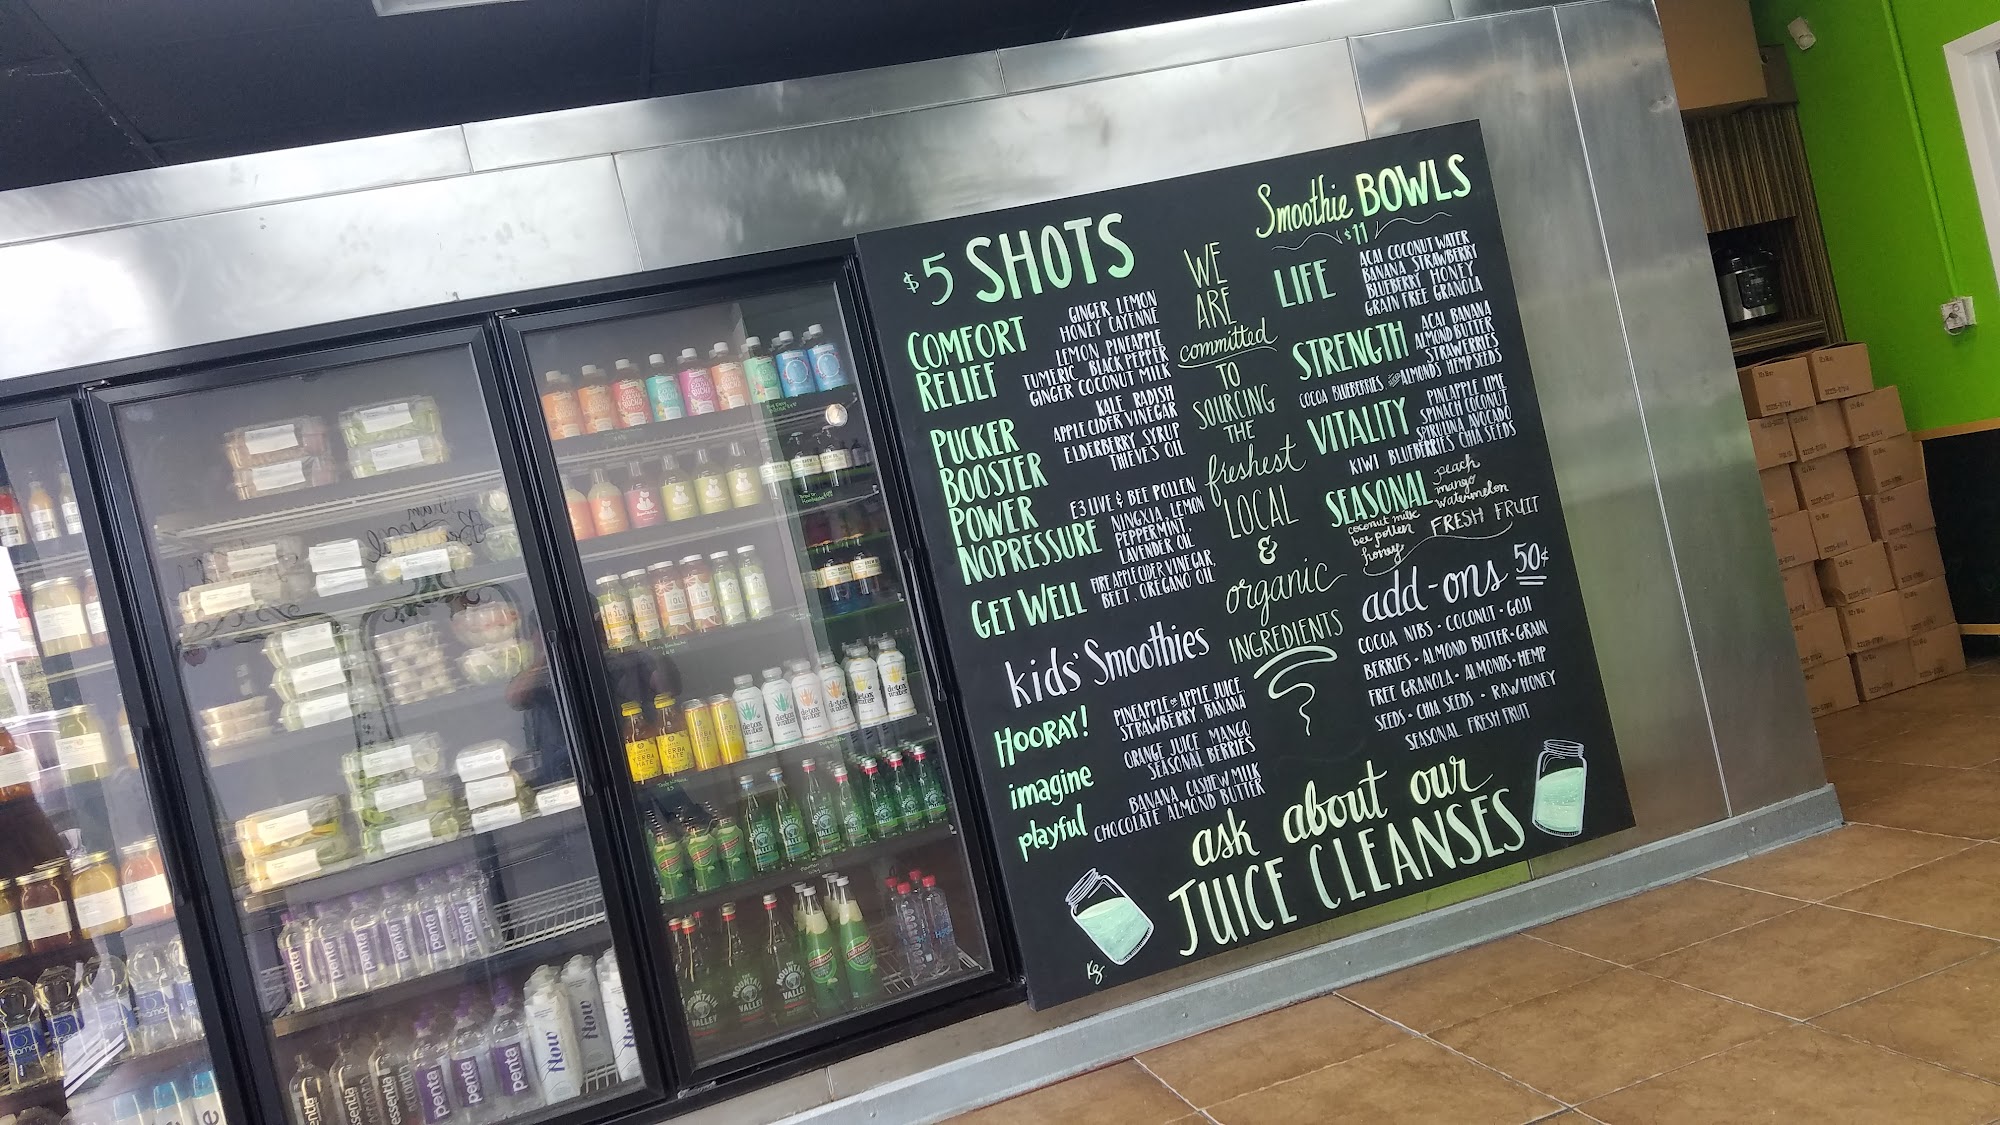 $5 SHOTS
COMFORT
RELIEF
PUCKER
BOOSTER
POWER
NOPRESSURE
GET WELL
GINGER LEMON
HONEY CAYENNE
LEMON PINEAPPLE
TUMERIC BLACK PEPPER
GINGER COCONUT MILK
KALE RADISH
APPLE CIDER VINEGAR
ELDERBERRY SYRUP
THIEVES OIL
E3LIVE & BEE POLLEN
NINGXIA, LEMON
PEPPERMINT,
LAVENDER OIL
FIRE APPLE CIDER VINEGAR,
BEET, OREGANO OIL
kids' Smoothies
HOORAY!
PINEAPPLE OR APPLE JUICE,
STRAWBERRY, BANANA
imagine
ORANGE JUICE MANGO
SEASONAL BERRIES
playful
BANANA CASHEW MILK
CHOCOLATE ALMOND BUTTER
Kg
WE
ARE
committed
TO
SOURCING
THE
freshest
LOCAL
&
organic
INGREDIENTS
Smoothie BOWLS
$11
LIFE
ACAI COCONUT WATER
BANANA STRAWBERRY
BLUEBERRY HONEY
GRAIN FREE GRANOLA
STRENGTH
ACAI BANANA
ALMOND BUTTER
STRAWERRIES
COCOA BLUEBERRIES ALMONDS HEMP SEEDS
VITALITY
PINEAPPLE LIME
SPINACH COCONUT
SPIRULINA AVOCADO
KIWI BLUEBERRIES CHIA SEEDS
SEASONAL
peach
mango
watermelon
coconut milk
bee pollen
honey
FRESH FRUIT
add-ons 50¢
COCOA NIBS • COCONUT • GOJI
BERRIES • ALMOND BUTTER • GRAIN
FREE GRANOLA • ALMONDS • HEMP
SEEDS • CHIA SEEDS • RAW HONEY
SEASONAL FRESH FRUIT
ask about our
JUICE CLEANSES
YERBA
MATE
YERBA
MATE
detox
water
detox
water
detox
water
detox
water
detox
water
THE
MOUNTAIN
VALLEY
MOUNTAIN
VALLEY
penta
penta
penta
penta
penta
penta
penta
penta
penta
essentia
flow
flow
flow